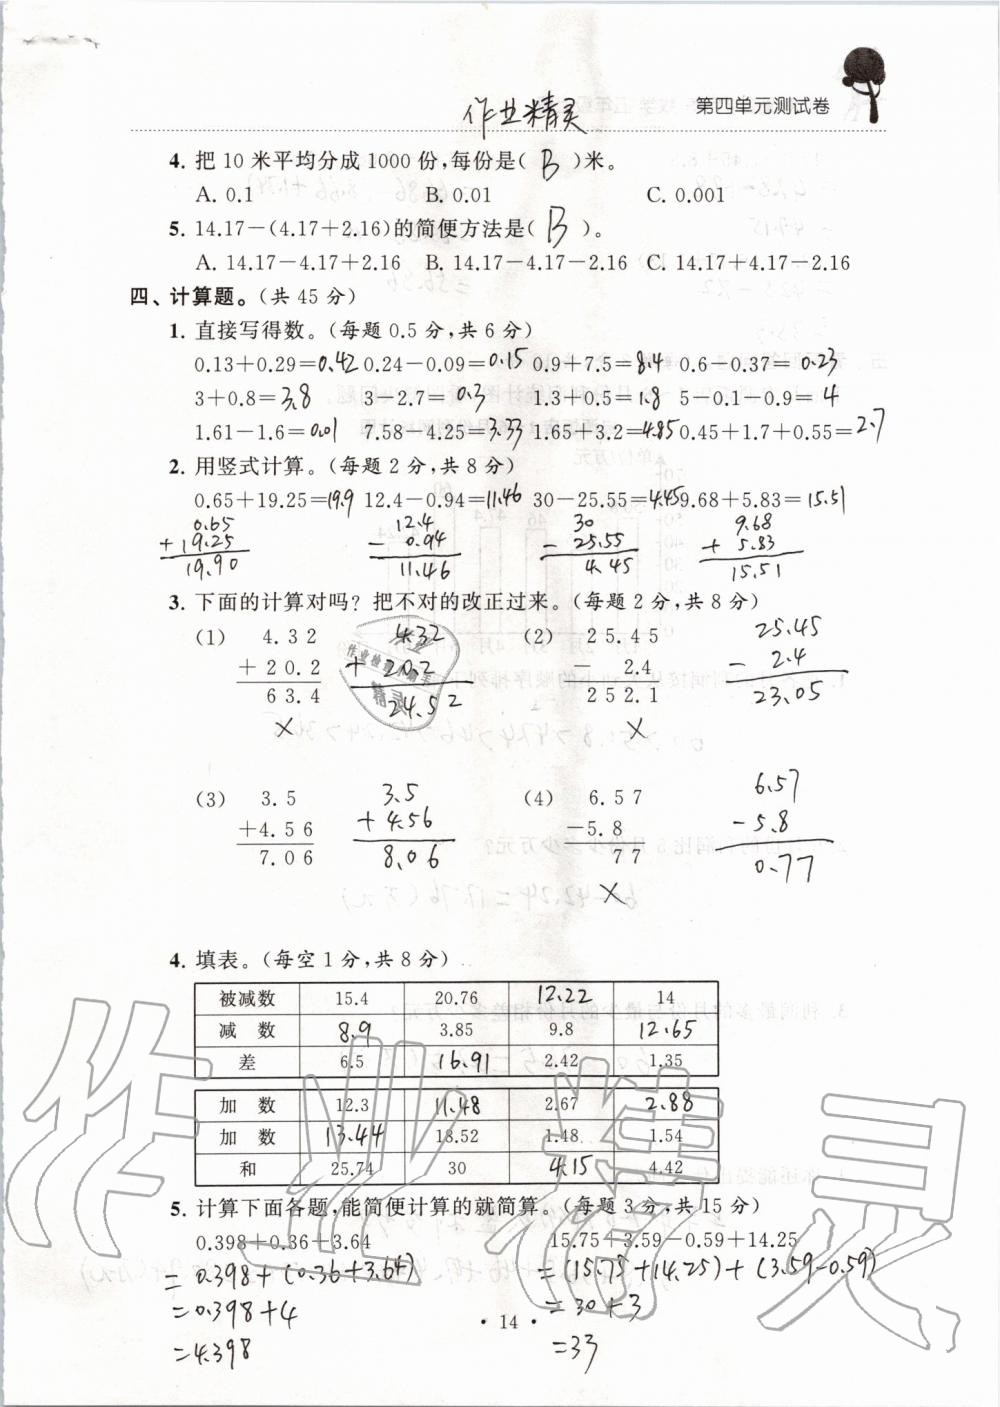 作业精灵 第四单元测试卷
4. 把 10 米平均分成 1000 份,每份是( B )米。
A. 0.1 B. 0.01 C. 0.001
5. 14.17－(4.17+2.16)的简便方法是( B )。
A. 14.17－4.17+2.16 B. 14.17－4.17－2.16 C. 14.17+4.17－2.16
四、计算题。(共 45 分)
1. 直接写得数。(每题 0.5 分,共 6 分)
0.13+0.29=0.42 0.24－0.09=0.15 0.9+7.5=8.4 0.6－0.37=0.23
3+0.8=3.8 3－2.7=0.3 1.3+0.5=1.8 5－0.1－0.9=4
1.61－1.6=0.01 7.58－4.25=3.33 1.65+3.2=4.85 0.45+1.7+0.55=2.7
2. 用竖式计算。(每题 2 分,共 8 分)
0.65+19.25=19.9 12.4－0.94=11.46 30－25.55=4.45 9.68+5.83=15.51
0.65 12.4 30 9.68
+19.25 －0.94 －25.55 +5.83
19.90 11.46 4.45 15.51
3. 下面的计算对吗? 把不对的改正过来。(每题 2 分,共 8 分)
(1) 4.32 4.32 (2) 25.45 25.45
+20.2 +20.2 － 2.4 － 2.4
63.4 24.52 252.1 23.05
× ×
(3) 3.5 3.5 (4) 6.57 6.57
+4.56 +4.56 －5.8 －5.8
7.06 8.06 77 0.77
×
4. 填表。(每空 1 分,共 8 分)
被减数 15.4 20.76 12.22 14
减 数 8.9 3.85 9.8 12.65
差 6.5 16.91 2.42 1.35
加 数 12.3 11.48 2.67 2.88
加 数 13.44 18.52 1.48 1.54
和 25.74 30 4.15 4.42
5. 计算下面各题,能简便计算的就简算。(每题 3 分,共 15 分)
0.398+0.36+3.64 15.75+3.59－0.59+14.25
=0.398+(0.36+3.64) =(15.75+14.25)+(3.59－0.59)
=0.398+4 =30+3
=4.398 =33
• 14 •
作业精灵